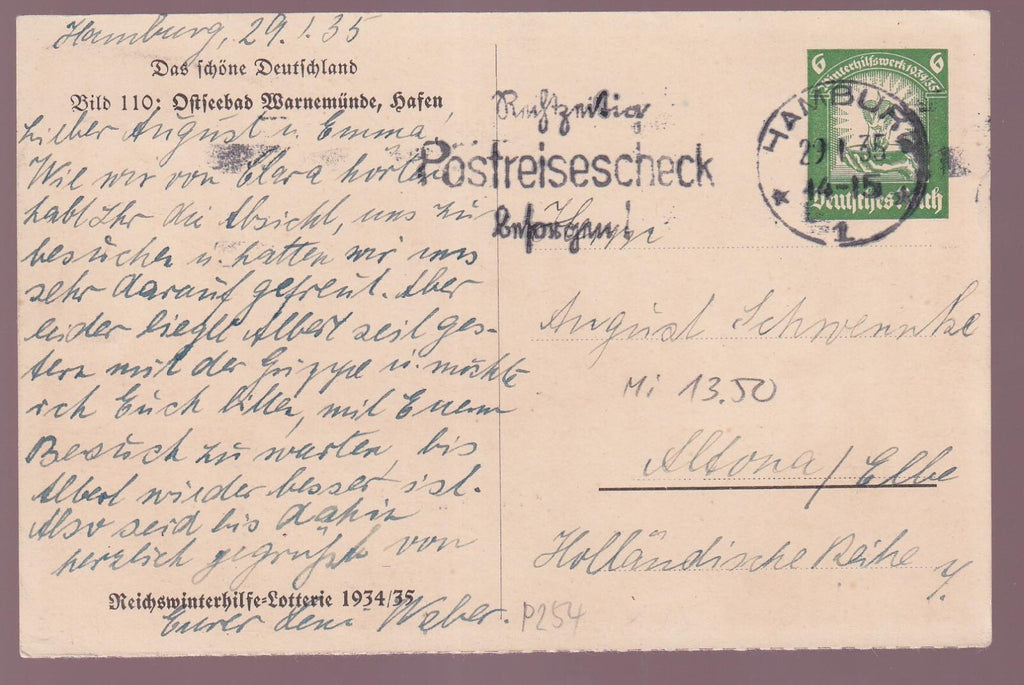 Hamburg, 29.1.35
Das schöne Deutschland
Bild 110: Ostseebad Warnemünde, Hafen
Lieber August u. Emma!
Wie wir von Clara hörten
habt Ihr die Absicht, uns zu
besuchen u. hatten wir uns
sehr darauf gefreut. Aber
leider liegt Albert seit ges-
tern mit der Grippe u. möchte
ich Euch bitten, mit Eurem
Besuch zu warten, bis
Albert wieder besser ist.
Also seid bis dahin
herzlich gegrüßt von
Reichswinterhilfe-Lotterie 1934/35
Eurer Weber.
Rechtzeitig
Postreisescheck
besorgen!
6 Winterhilfswerk 1934/35 6
Deutsches Reich
HAMBURG
29.1.35
14-15
1
August
Mi 13.50
Altona/Elbe
Holländische Reihe
P254